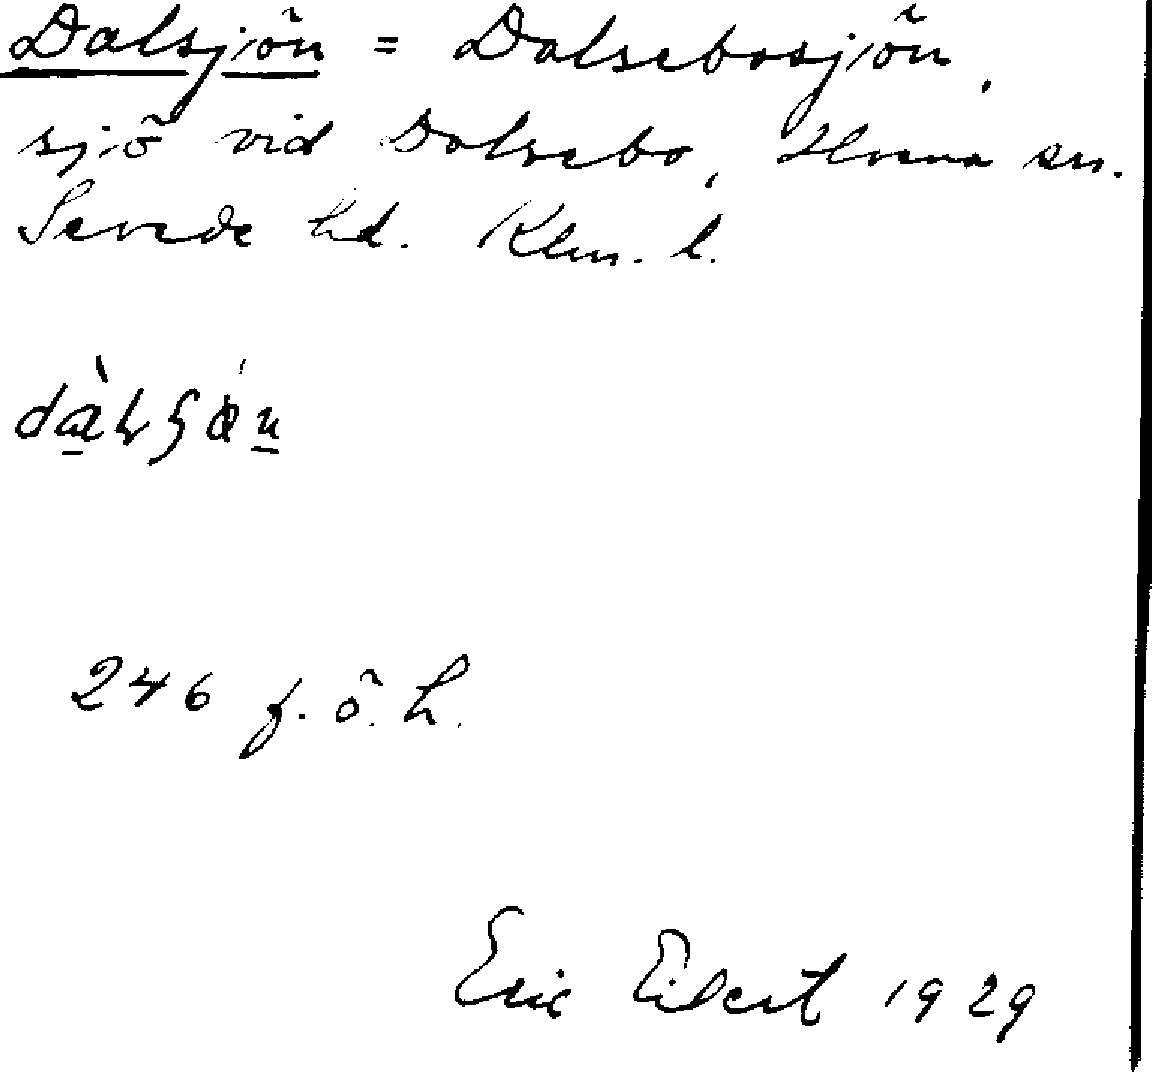 Dalsjön = Dalsebosjön,
sjö vid Dalsebo, Hvena sn.
Sevede hd. Klm. l.
246 f. ö. h.
Eric Eilert 1929